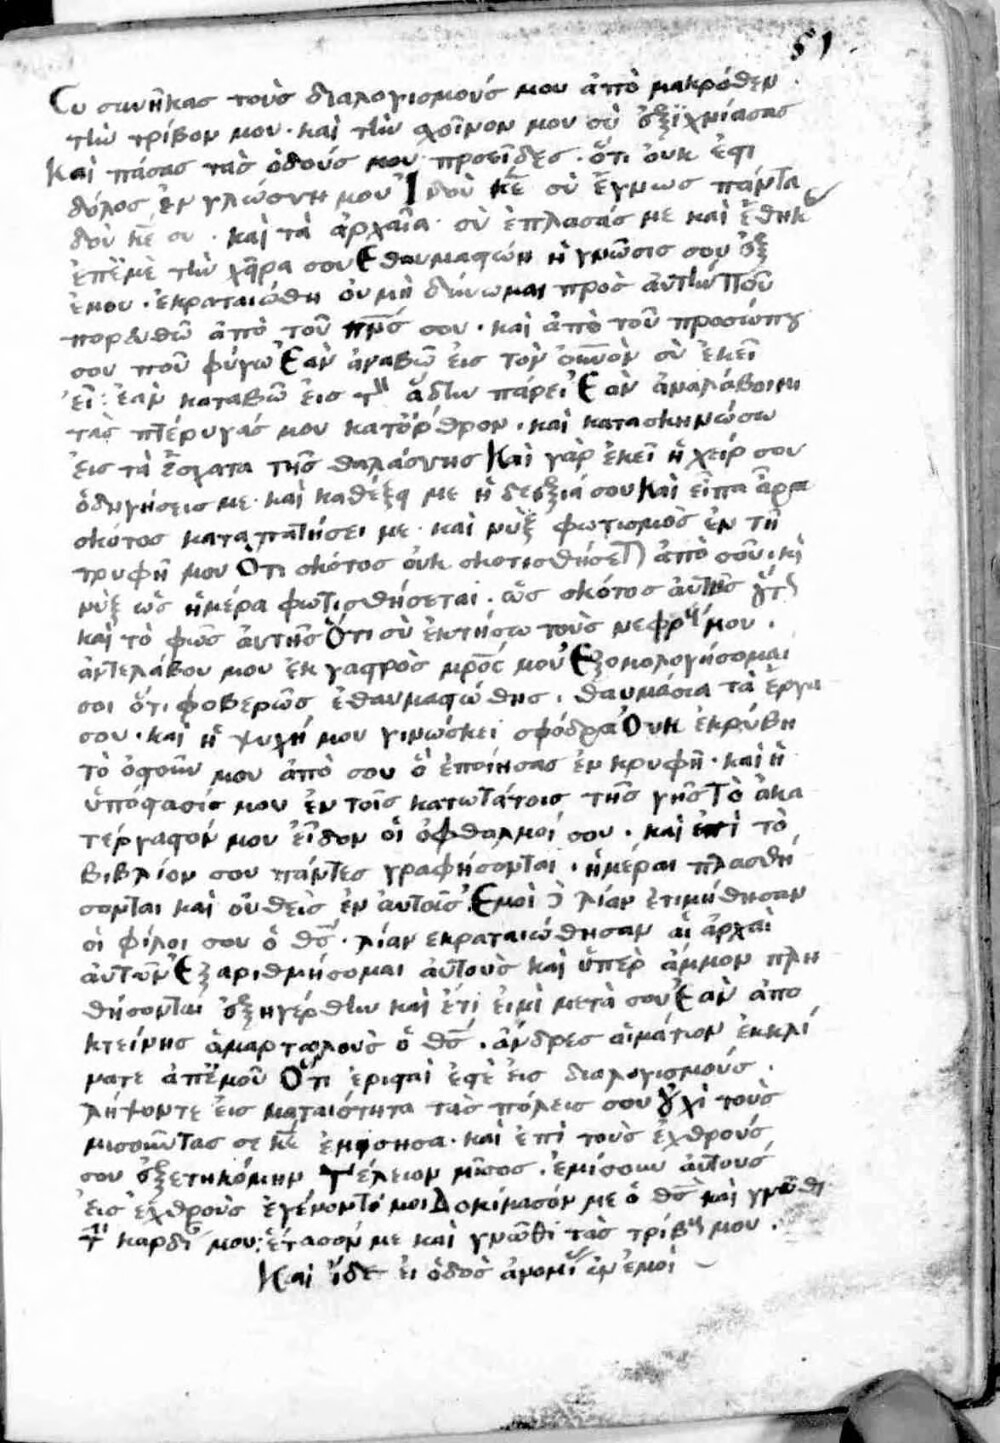 51
Cυ συνῆκας τοὺς διαλογισμούς μου ἀπὸ μακρόθεν
τὴν τρίβον μου · καὶ τὴν σχοῖνον μου σὺ ἐξϊχνίασας
Καὶ πάσας τὰς ὁδούς μου προεῖδες · ὅτι οὐκ ἔστι
δόλος ἐν γλώσση μου Ἰδοὺ κε σὺ ἔγνως πάντα
δοὺ κε συ · καὶ τὰ ἀρχαῖα · σὺ ἐπλασάς με καὶ ἔθηκ
ἐπ' ἐμὲ τὴν χεῖρα σου Εθαυμαστώθη ἡ γνῶσις σου ἐξ
ἐμου · ἐκραταιώθη οὐ μὴ δύνωμαι πρὸς αὐτήν Ποῦ
πορευθῶ ἀπὸ τοῦ πνς σου · καὶ ἀπὸ τοῦ προσώπου
σου ποῦ φύγω Ἐὰν ἀναβῶ εἰς τὸν οὐνὸν σὺ ἐκεῖ
εἶ : ἐὰν καταβῶ εἰς τ ἅδην πάρει Ἐὰν ἀναλάβοιμι
τὰς πτέρυγάς μου κατ' ὄρθρον · καὶ κατασκηνώσω
εἰς τὰ ἔσχατα τῆς θαλάσσης Καὶ γὰρ ἐκεῖ ἡ χείρ σου
ὁδηγήσει με · καὶ καθέξει με ἡ δεξιά σου Καὶ εἶπα ἆρα
σκότος καταπατήσει με · καὶ νὺξ φωτισμὸς ἐν τῆ
τρυφῆ μου Ὅτι σκότος οὐκ σκοτισθήσετ ἀπὸ σοῦ · κὶ
νὺξ ὡς ἡμέρα φωτισθήσεται · ὡς σκότος αὐτῆς οὕτ
καὶ τὸ φῶς ἀυτῆς Ὅτι σὺ ἐκτήσω τοὺς νεφρούς μου ·
ἀντελάβου μου ἐκ γαστρὸς μρς μου Ἐξομολογήσομαι
σοι ὅτι φοβερῶς ἐθαυμαστώθης · θαυμάσια τὰ ἔργα
σου · καὶ ἡ ψυχή μου γινώσκει σφόδρα Ουκ ἐκρύβη
τὸ ὀστοῦν μου ἀπὸ σου ὃ ἐποίησας ἐν κρυφῆ · καὶ ἡ
ὑπόστασίς μου ἐν τοῖς κατωτάτοις τῆς γῆς Τὸ ἀκα
τέργαστόν μου εἶδον οἱ ὀφθαλμοί σου · καὶ ἐπὶ τὸ
βιβλίον σου πάντες γραφήσονται · ἡμέραι πλασθή
σονται καὶ οὐθεὶς ἐν αὐτοῖς Ἐμοὶ λίαν ἐτιμήθησαν
οἱ φίλοι σου ὁ θς · λίαν ἐκραταιώθησαν αἱ ἀρχαὶ
ἀυτῶν Ἐξαριθμήσομαι αὐτοὺς καὶ ὑπὲρ ἄμμον πλη
θήσονται ἐξηγέρθην καὶ ἔτι εἰμὶ μετὰ σοῦ Ἐὰν ἀπο
κτείνης ἁμαρτωλοὺς ὁ θς · ἄνδρες αἱμάτων ἐκκλί
νατε ἀπ' ἐμοῦ Ὅτι ἐρισταὶ ἐστὲ εἰς διαλογισμούς ·
λήψοντε εἰς ματαιότητα τὰς πόλεις σου Οὐχὶ τοὺς
μισοῦντας σε κε ἐμίσησα · καὶ ἐπὶ τοὺς ἐχθρούς
σου ἐξετηκόμην Τέλειον μῖσος · ἐμίσουν αὐτούς
εἰς ἐχθροὺς ἐγένοντό μοι Δοκίμασόν με ὁ θς καὶ γνῶθι
τ καρδί μου : ἔτασόν με καὶ γνῶθι τὰς τρίβους μου ·
Καὶ ἴδε εἰ ὁδὸς ἀνομί ἐν ἐμοὶ